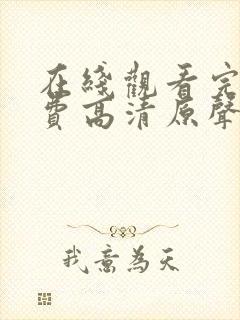 在綫觀看完
費高清原聲
我意為天